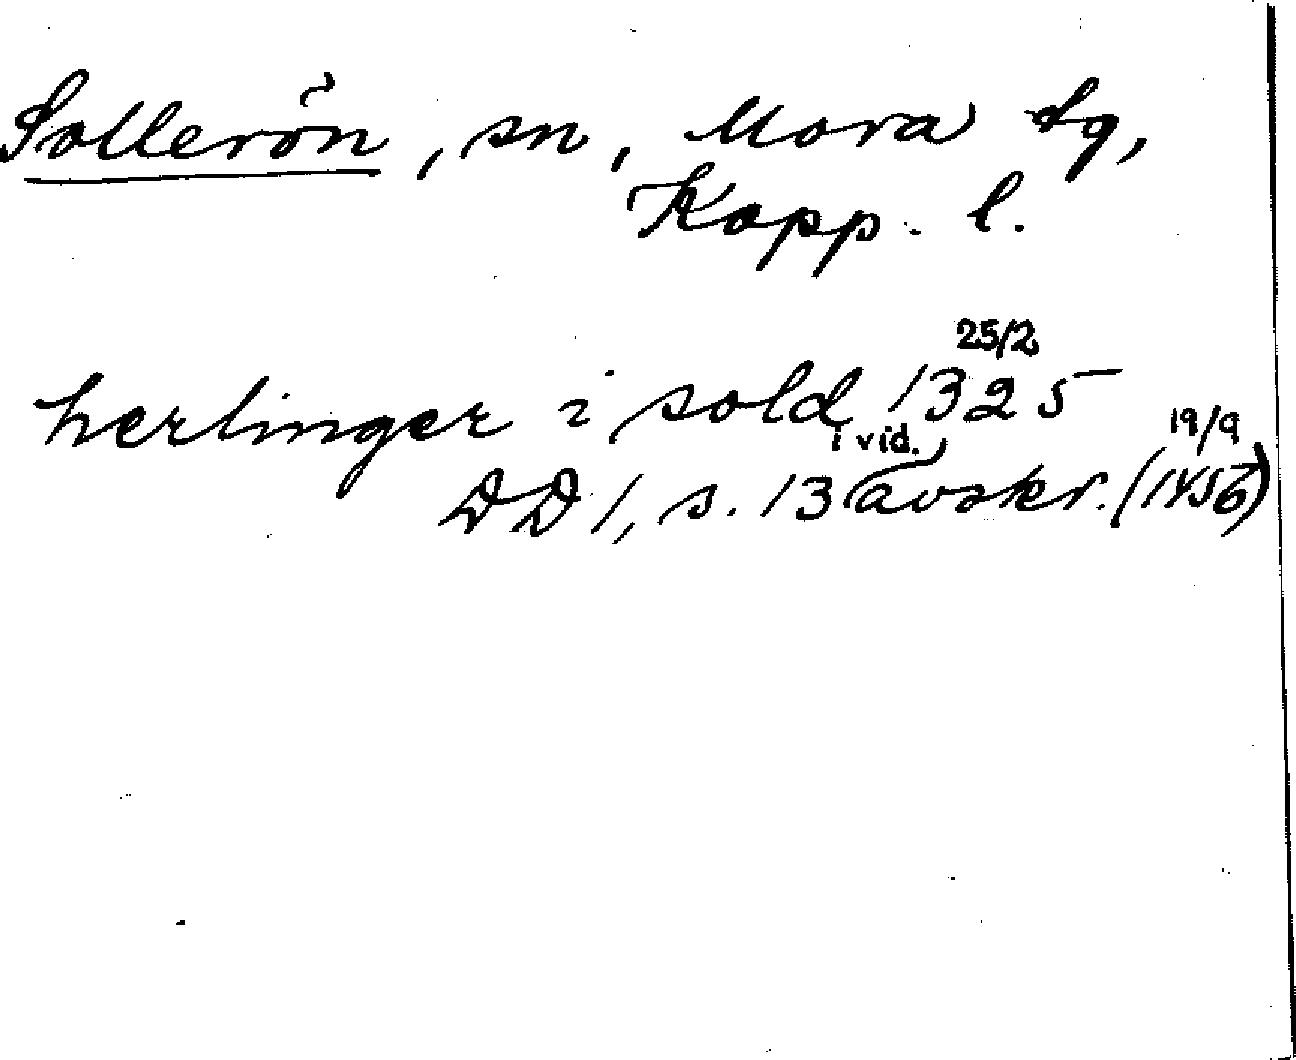 Sollerön, sn, Mora tg,
Kopp. l.
herlinger i sold 1325 25/2
DD 1, s. 13 i vid. avskr. (1456 19/9)